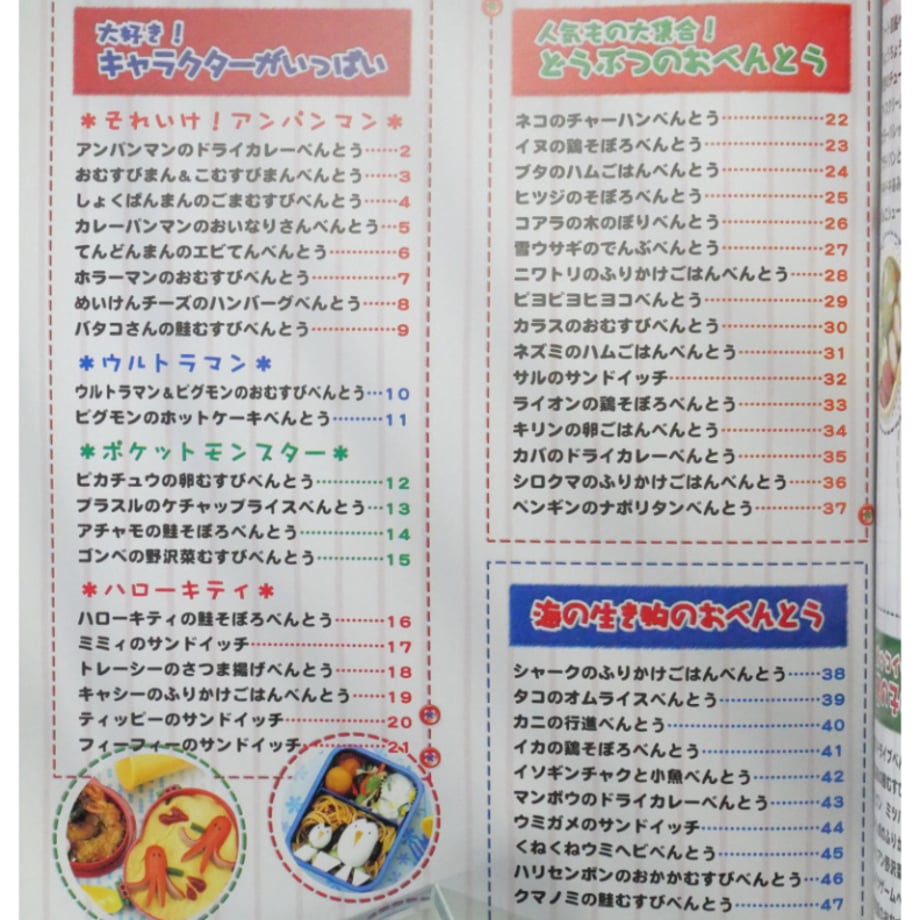 大好き！
キャラクターがいっぱい
＊それいけ！アンパンマン＊
アンパンマンのドライカレーべんとう……2
おむすびまん＆こむすびまんべんとう……3
しょくぱんまんのごまむすびべんとう……4
カレーパンマンのおいなりさんべんとう…5
てんどんまんのエビてんべんとう………6
ホラーマンのおむすびべんとう…………7
めいけんチーズのハンバーグべんとう……8
バタコさんの鮭むすびべんとう…………9
＊ウルトラマン＊
ウルトラマン＆ピグモンのおむすびべんとう…10
ピグモンのホットケーキべんとう………11
＊ポケットモンスター＊
ピカチュウの卵むすびべんとう…………12
プラスルのケチャップライスべんとう…13
アチャモの鮭そぼろべんとう……………14
ゴンベの野沢菜むすびべんとう…………15
＊ハローキティ＊
ハローキティの鮭そぼろべんとう………16
ミミィのサンドイッチ……………………17
トレーシーのさつま揚げべんとう………18
キャシーのふりかけごはんべんとう……19
ティッピーのサンドイッチ………………20
フィーフィーのサンドイッチ……………21
人気もの大集合！
どうぶつのおべんとう
ネコのチャーハンべんとう………………22
イヌの鶏そぼろべんとう…………………23
ブタのハムごはんべんとう………………24
ヒツジのそぼろべんとう…………………25
コアラの木のぼりべんとう………………26
雪ウサギのでんぶべんとう………………27
ニワトリのふりかけごはんべんとう……28
ピヨピヨヒヨコべんとう…………………29
カラスのおむすびべんとう………………30
ネズミのハムごはんべんとう……………31
サルのサンドイッチ………………………32
ライオンの鶏そぼろべんとう……………33
キリンの卵ごはんべんとう………………34
カバのドライカレーべんとう……………35
シロクマのふりかけごはんべんとう……36
ペンギンのナポリタンべんとう…………37
海の生き物のおべんとう
シャークのふりかけごはんべんとう……38
タコのオムライスべんとう………………39
カニの行進べんとう………………………40
イカの鶏そぼろべんとう…………………41
イソギンチャクと小魚べんとう…………42
マンボウのドライカレーべんとう………43
ウミガメのサンドイッチ…………………44
くねくねウミヘビべんとう………………45
ハリセンボンのおかかむすびべんとう…46
クマノミの鮭むすびべんとう……………47